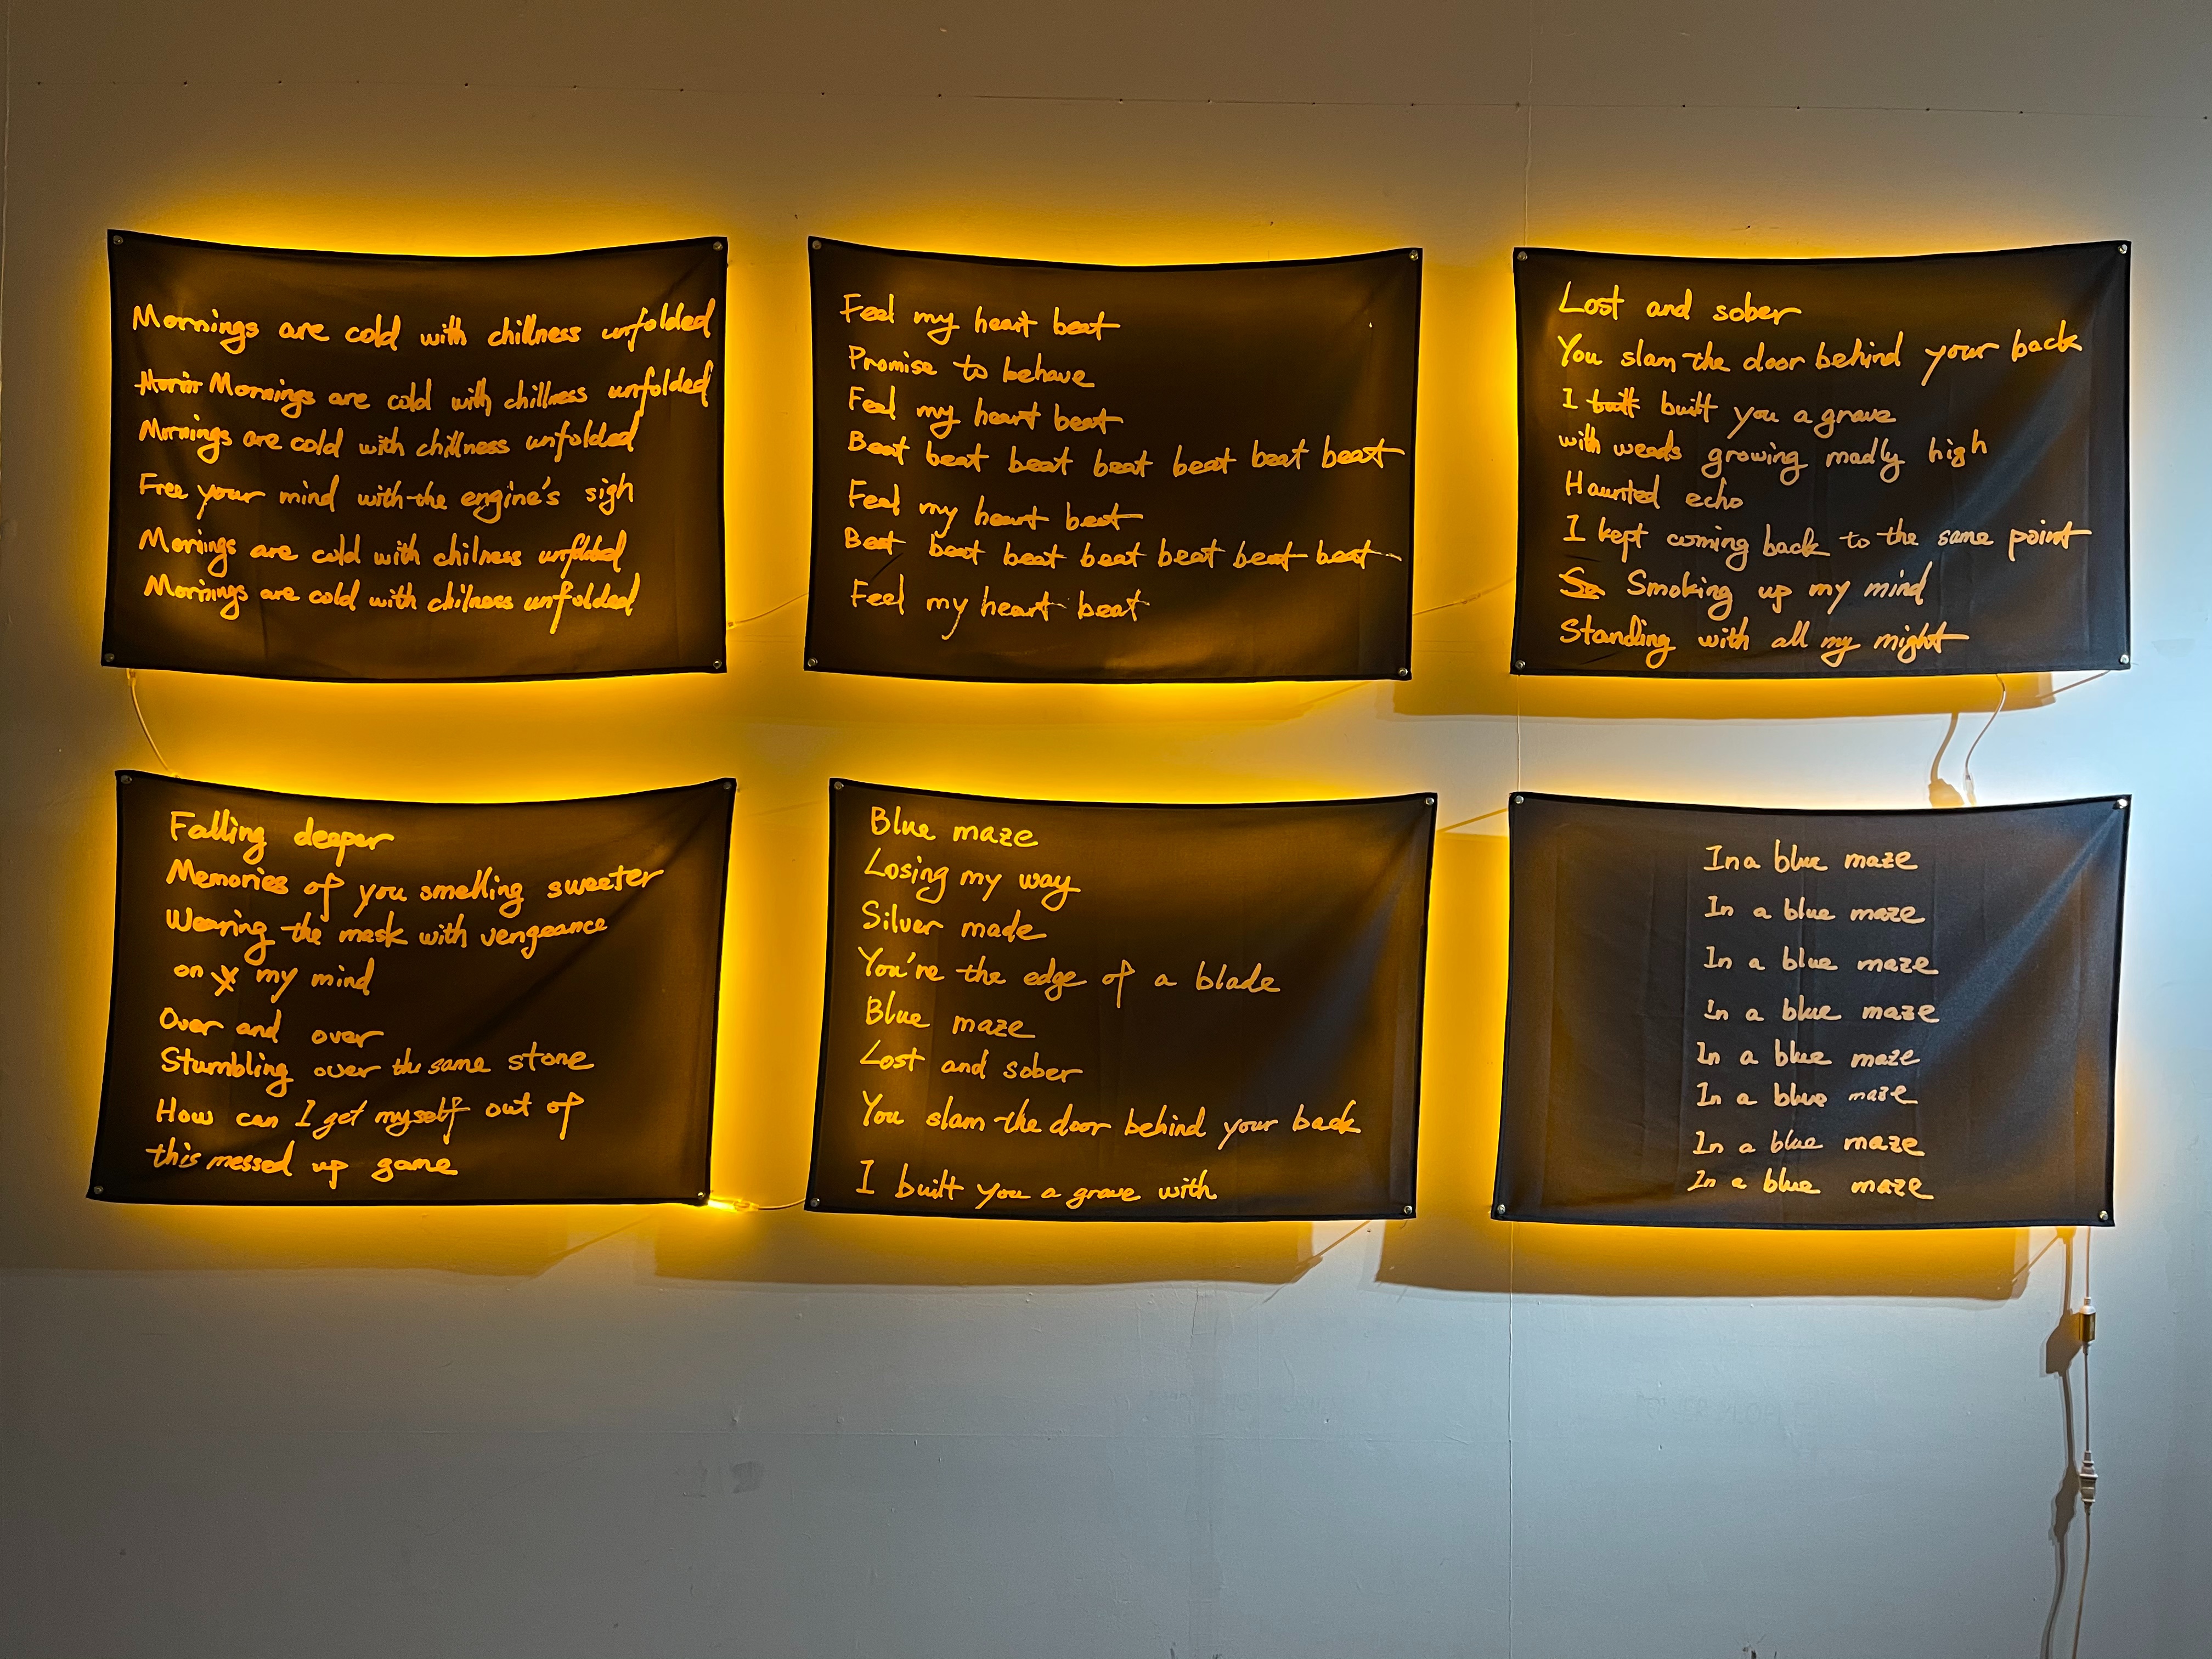 Mornings are cold with chillness unfolded
Morin Mornings are cold with chillness unfolded
Mornings are cold with chillness unfolded
Free your mind with the engine's sigh
Mornings are cold with chilness unfolded
Mornings are cold with chilness unfolded
Feel my heart beat
Promise to behave
Feel my heart beat
Beat beat beat beat beat beat beat
Feel my heart beat
Beat beat beat beat beat beat beat
Feel my heart beat
Lost and sober
You slam the door behind your back
I built built you a grave
with weeds growing madly high
Haunted echo
I kept coming back to the same point
So Smoking up my mind
Standing with all my might
Falling deeper
Memories of you smelling sweeter
Wearing the mask with vengeance
on my mind
Over and over
Stumbling over the same stone
How can I get myself out of
this messed up game
Blue maze
Losing my way
Silver made
You're the edge of a blade
Blue maze
Lost and sober
You slam the door behind your back
I built you a grave with
In a blue maze
In a blue maze
In a blue maze
In a blue maze
In a blue maze
In a blue maze
In a blue maze
In a blue maze